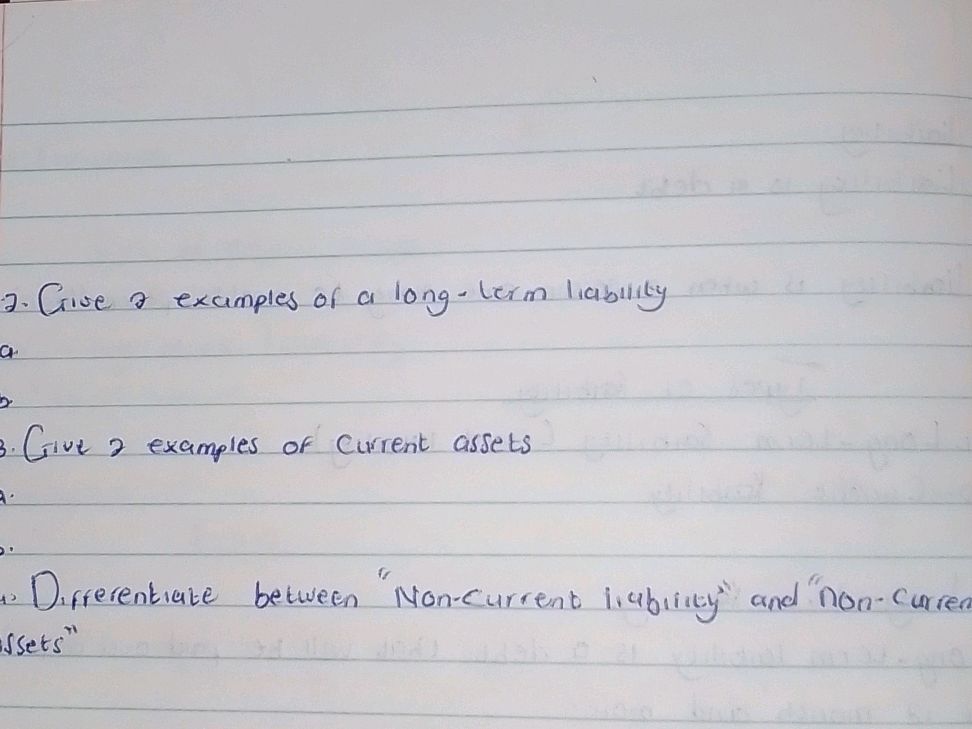 2. Give 2 examples of a long-term liability
a.
b.
3. Give 2 examples of Current assets
a.
b.
4. Differentiate between "Non-Current liability" and "non-Curren
assets"